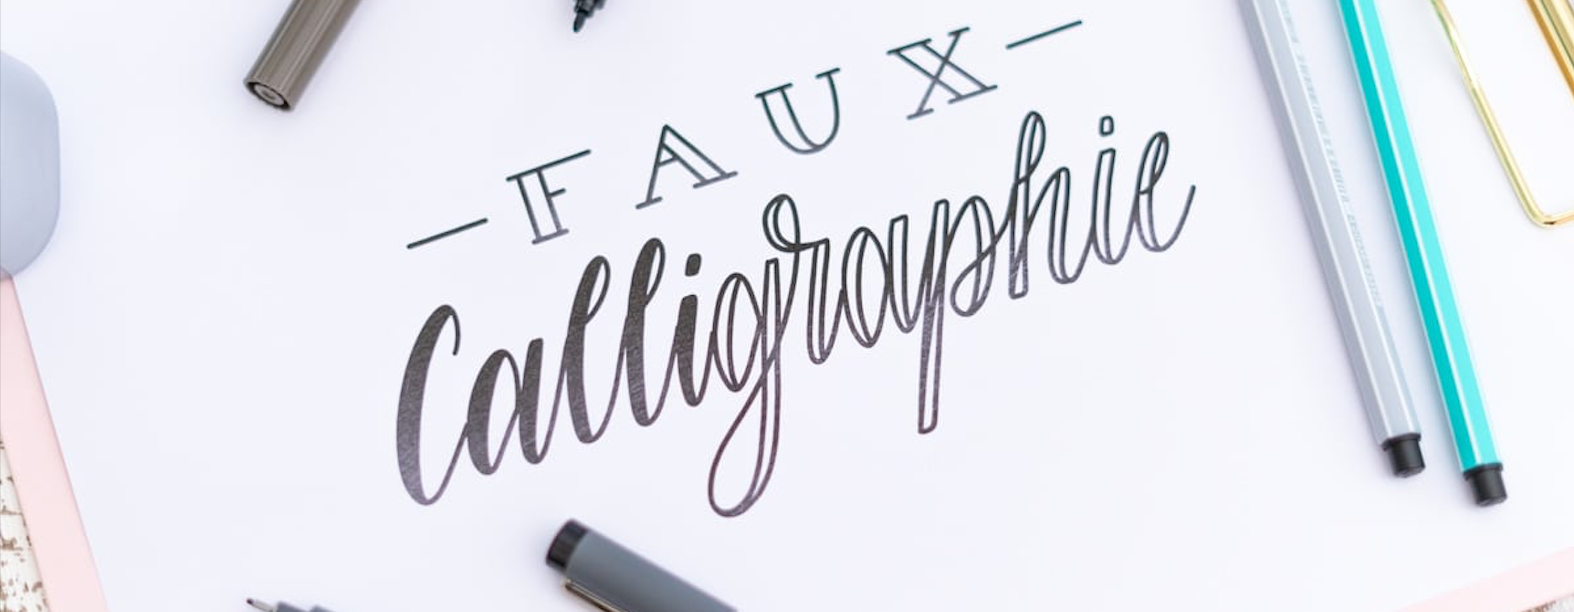 — FAUX —
Calligraphie